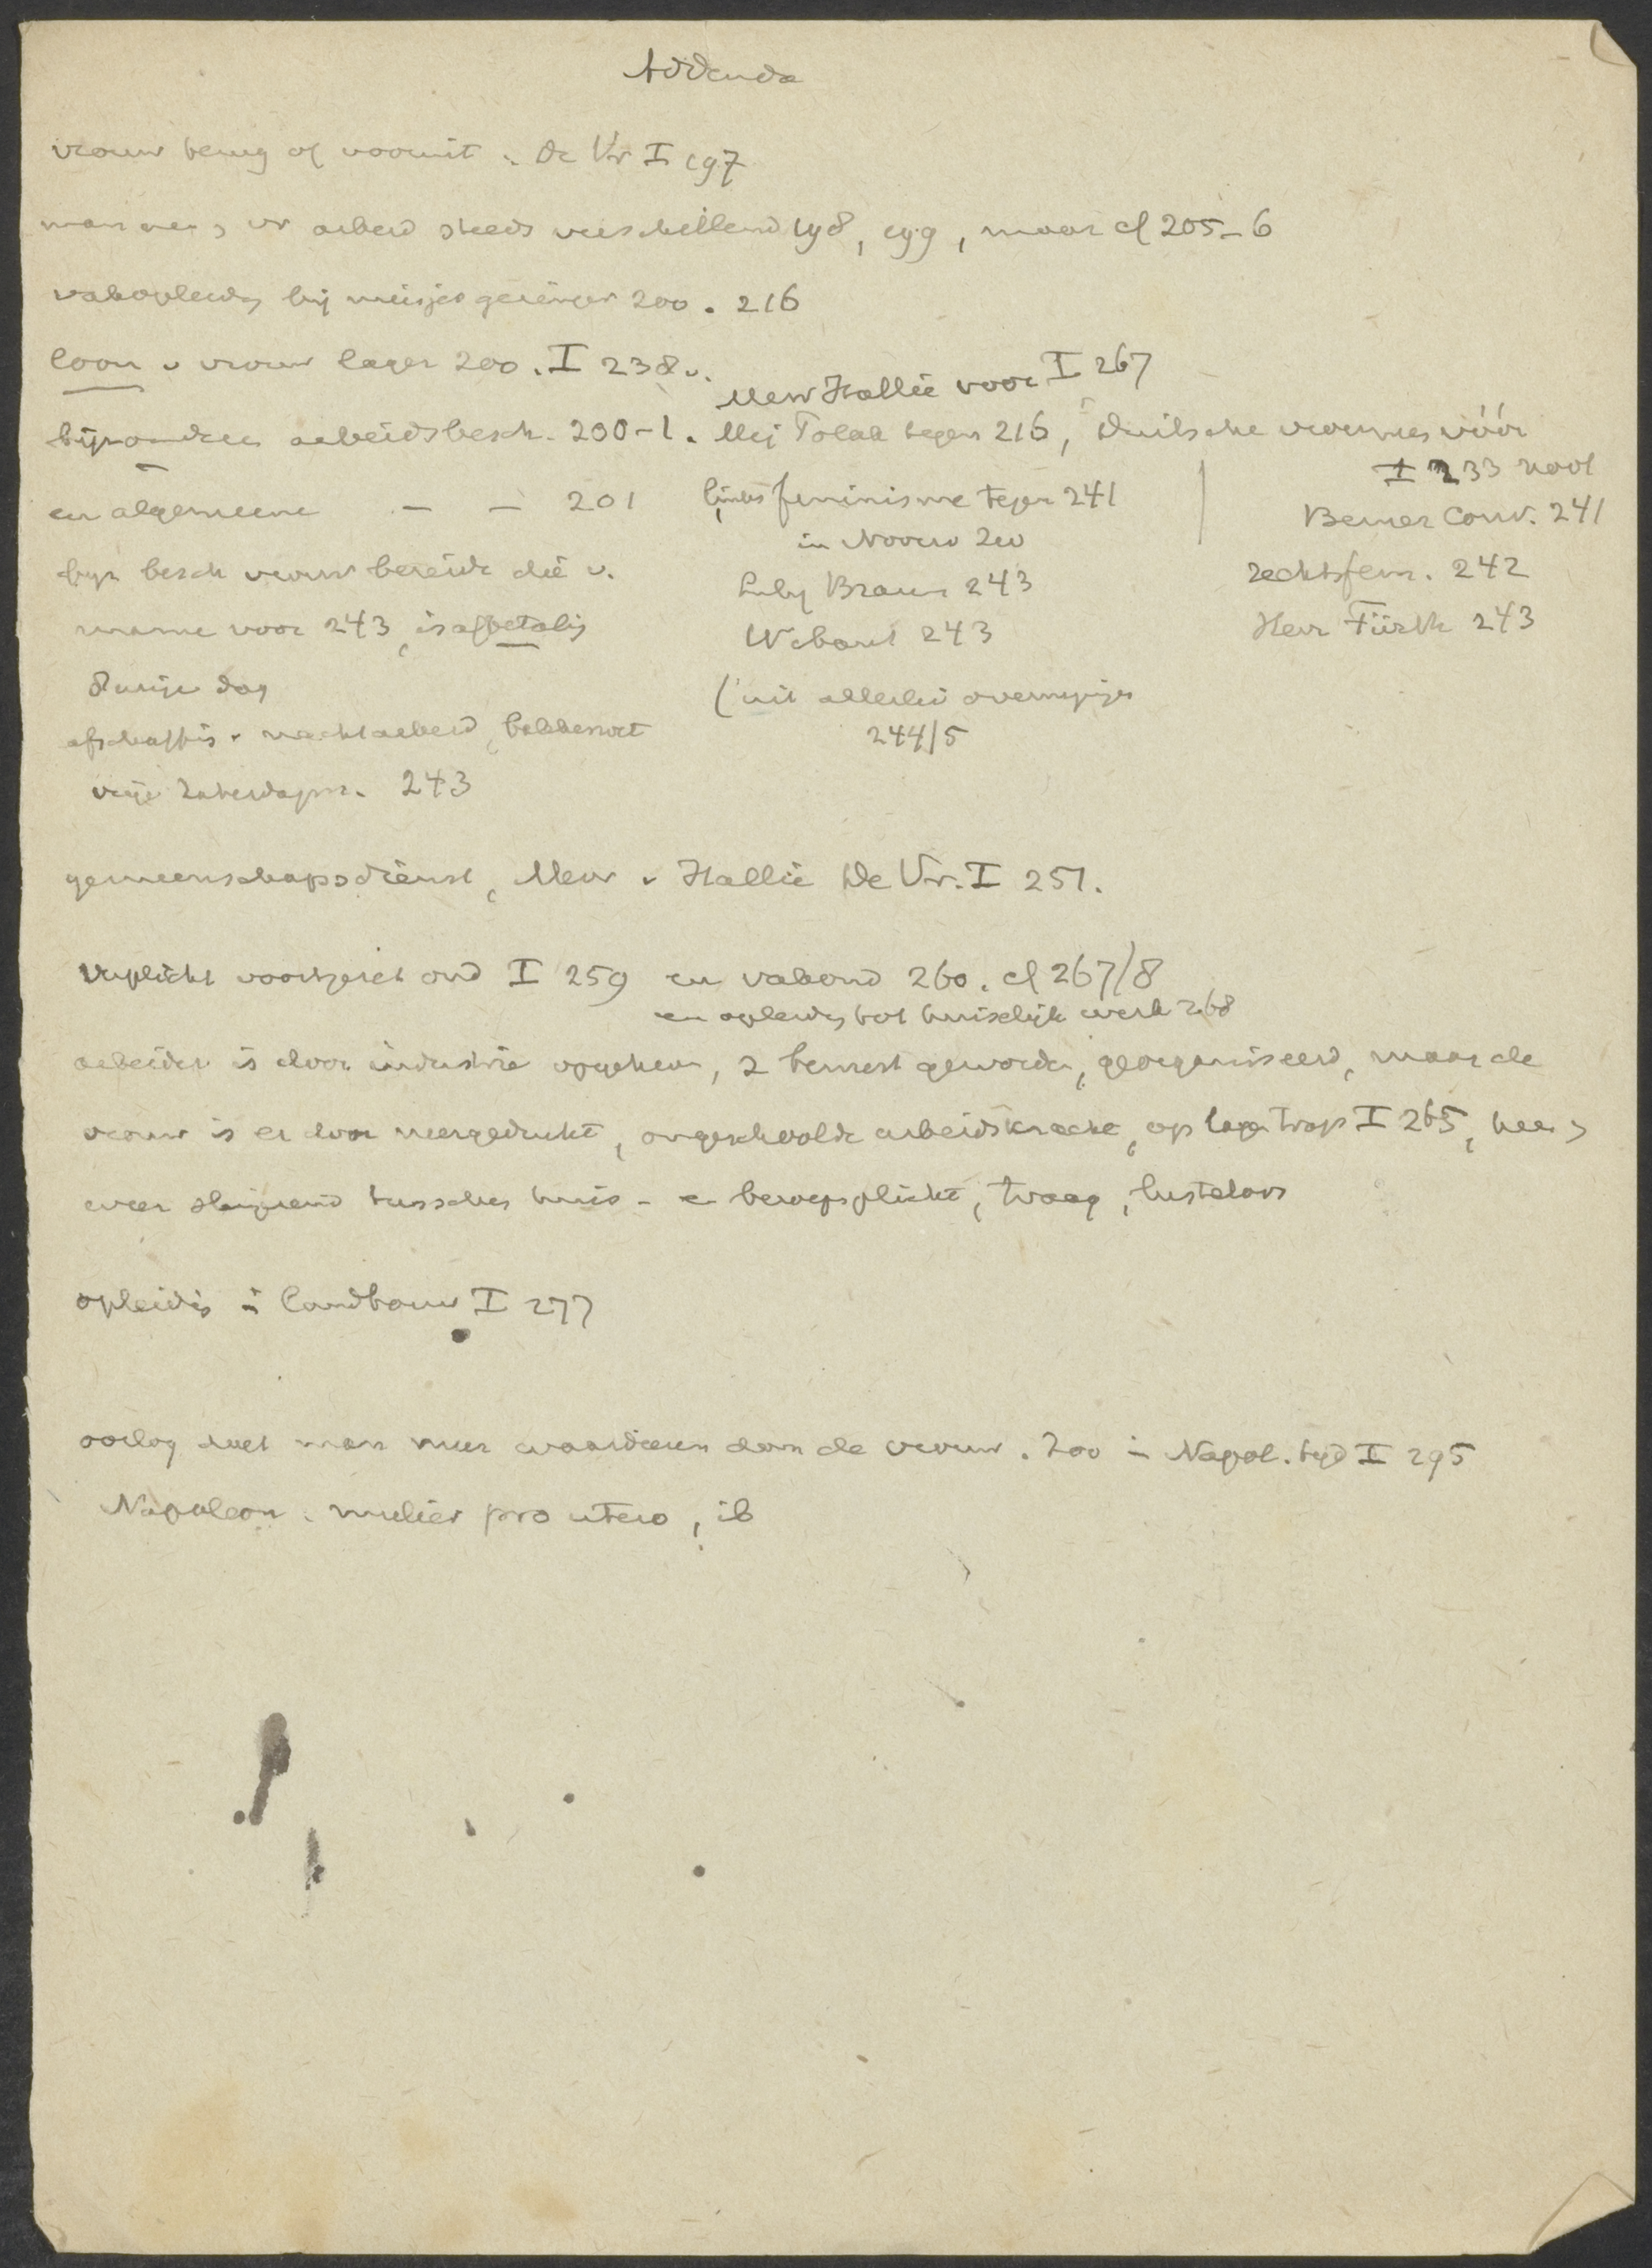 Addenda
vrouw terug of vooruit. De Vr I 197
man en vr arbeid steeds verschillend 198, 199, maar cf 205-6
vakopleidg bij meisjes geringer 200. 216
loon v vrouw lager 200. I 238 v.
Mevr Hallie voor I 267
bijzondere arbeidsbesch. 200-1. Mej Polak tegen 216, Duitsche vrouwes vóór
I 233 noot
en algemeene — — 201
links feminisme tegen 241
Berner Conv. 241
in Noorw Zw
bijz besch vrouw bereidde die v.
Lily Braun 243
rechtsfem. 242
manne voor 243,
W 243
Herr Fürth 243
8 urige dag
(uit allerlei overwegingen
afschaffing v nachtarbeid, bakkerswet
244/5
vrije Zaterdagm. 243
gemeenschapsdienst, Mevr v Hallie De Vr. I 251.
Verplicht voortgezet ond I 259 en vakond 260. cf 267/8
en opleidg tot huiselijk werk 268
arbeider is door industrie opgeheven, z bewust geworden, georganiseerd, maar de
vrouw is er door neergedrukt, ongeschoolde arbeidskracht, op lage trap I 265, heen
weer slingerend tusschen huis- en beroepsplicht, traag, lusteloos
opleidig in landbouw I 277
oorlog doet man meer waardeeren dan de vrouw. Zoo in Napol. tijd I 295
Napoleon. mulier pro utero, ib